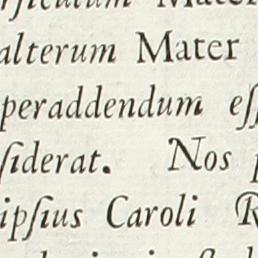 alterum Mater
peraddendum eſſ
ſiderat. Nos
ipſius Caroli